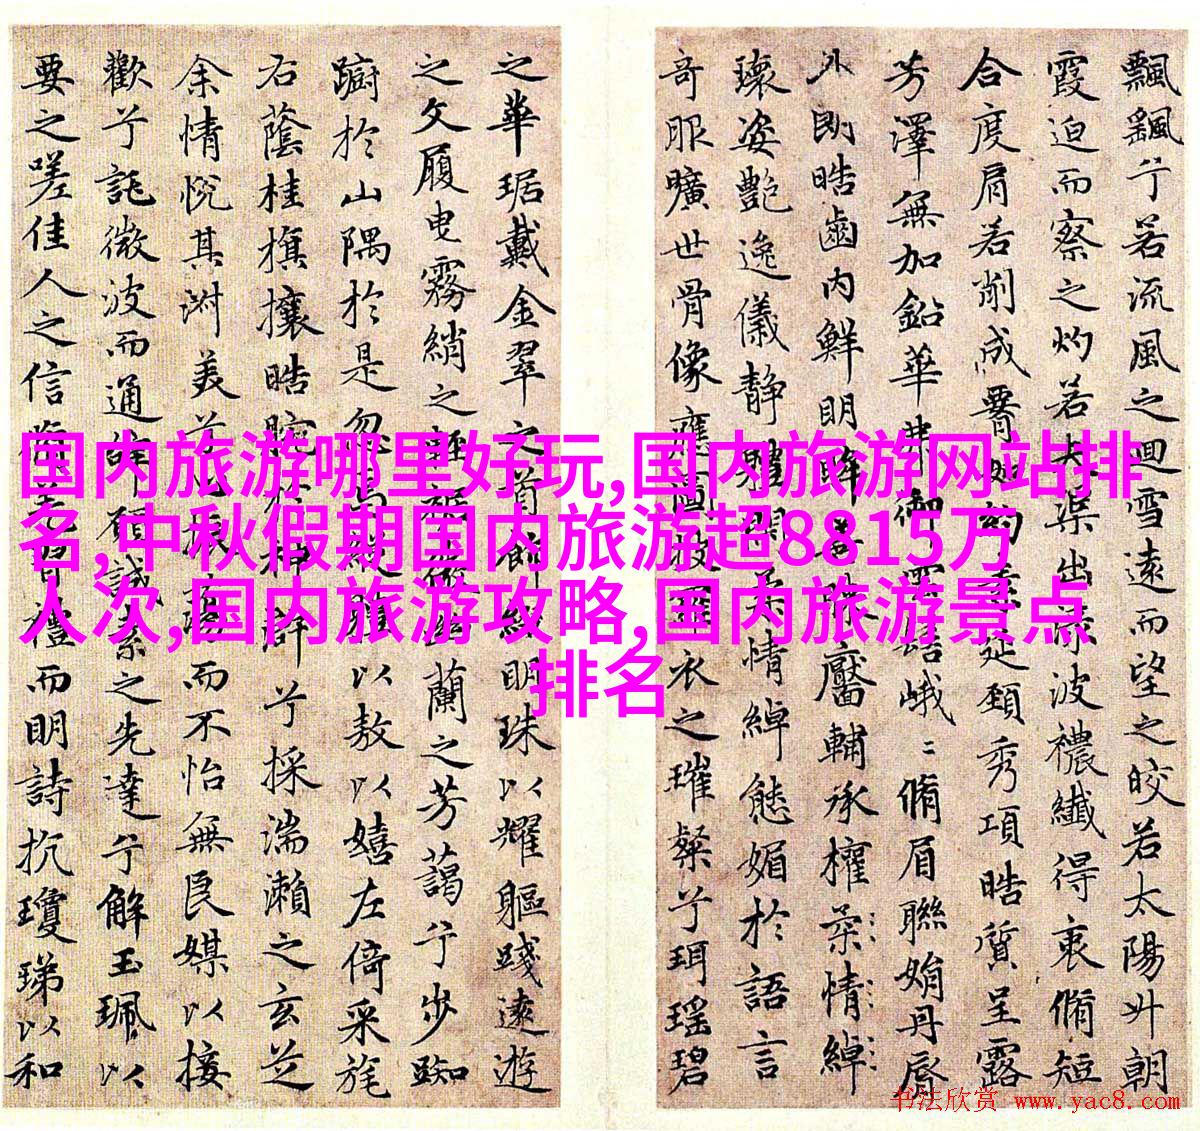 飄飖兮若流風之迴雪遠而望之皎若太陽升朝
霞迫而察之灼若夫渠出淥波襛纖得衷脩短
合度肩若削成腰如約素延頸秀項皓質呈露
芳澤無加鉛華弗御雲髻峨〻脩眉聯娟丹脣
外朗皓齒內鮮明眸善睞靨輔承權柔情綽
瓌姿艷逸儀靜體閑柔情綽態媚於語言
奇服曠世骨像應圖披羅衣之璀粲兮珥瑤碧
之華琚戴金翠之首飾綴明珠以耀軀踐遠遊
之文履曳霧綃之輕裾微幽蘭之芳藹兮步踟
躕於山隅於是忽焉縱體以敖以嬉左倚采旄
右蔭桂旗攘皓腕於神滸兮採湍瀨之玄芝
余情悅其淑美兮心振蕩而不怡無良媒以接
歡兮託微波而通辭願誠素之先達兮解玉珮以
要之嗟佳人之信脩羌習禮而明詩抗瓊珶以和
国内旅游哪里好玩,国内旅游网站排
名,中秋假期国内旅游超8815万
人次,国内旅游攻略,国内旅游景点
排名
书法欣赏 www.yac8.com